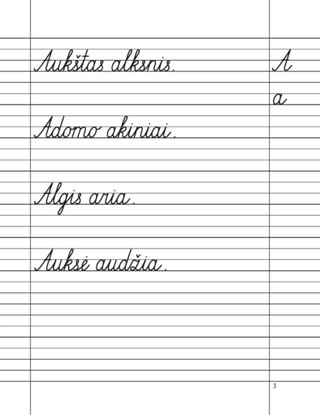 Aukštas alksnis. A
a
Adomo akiniai.
Algis aria.
Auksė audžia.
3